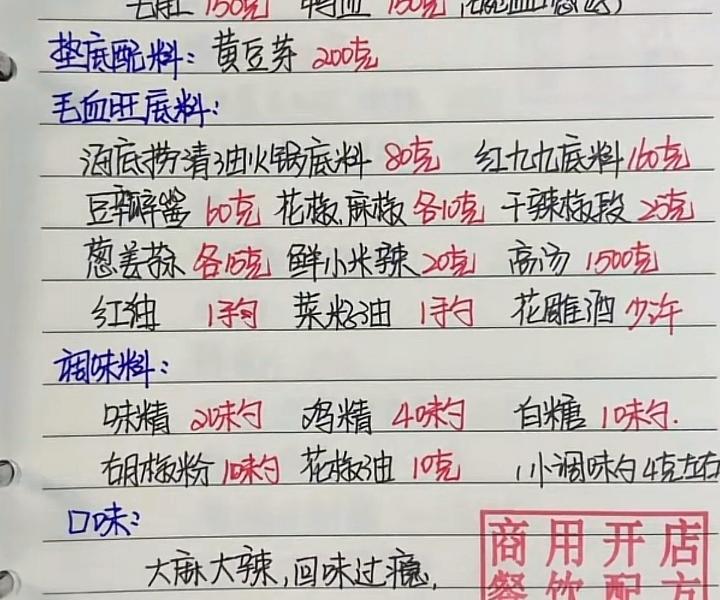 150克 鸭血 150克
垫底配料: 黄豆芽 200克
毛血旺底料:
海底捞清油火锅底料 80克 红九九底料 160克
豆瓣酱 60克 花椒.麻椒 各10克 干辣椒段 25克
葱姜蒜 各15克 鲜小米辣 20克 高汤 1500克
红油 1手勺 菜籽油 1手勺 花雕酒 少许
调味料:
味精 2味勺 鸡精 4味勺 白糖 1味勺.
胡椒粉 1味勺 花椒油 10克 1小调味勺4克左右
口味:
大麻大辣,回味过瘾,
商用开店
餐饮配方